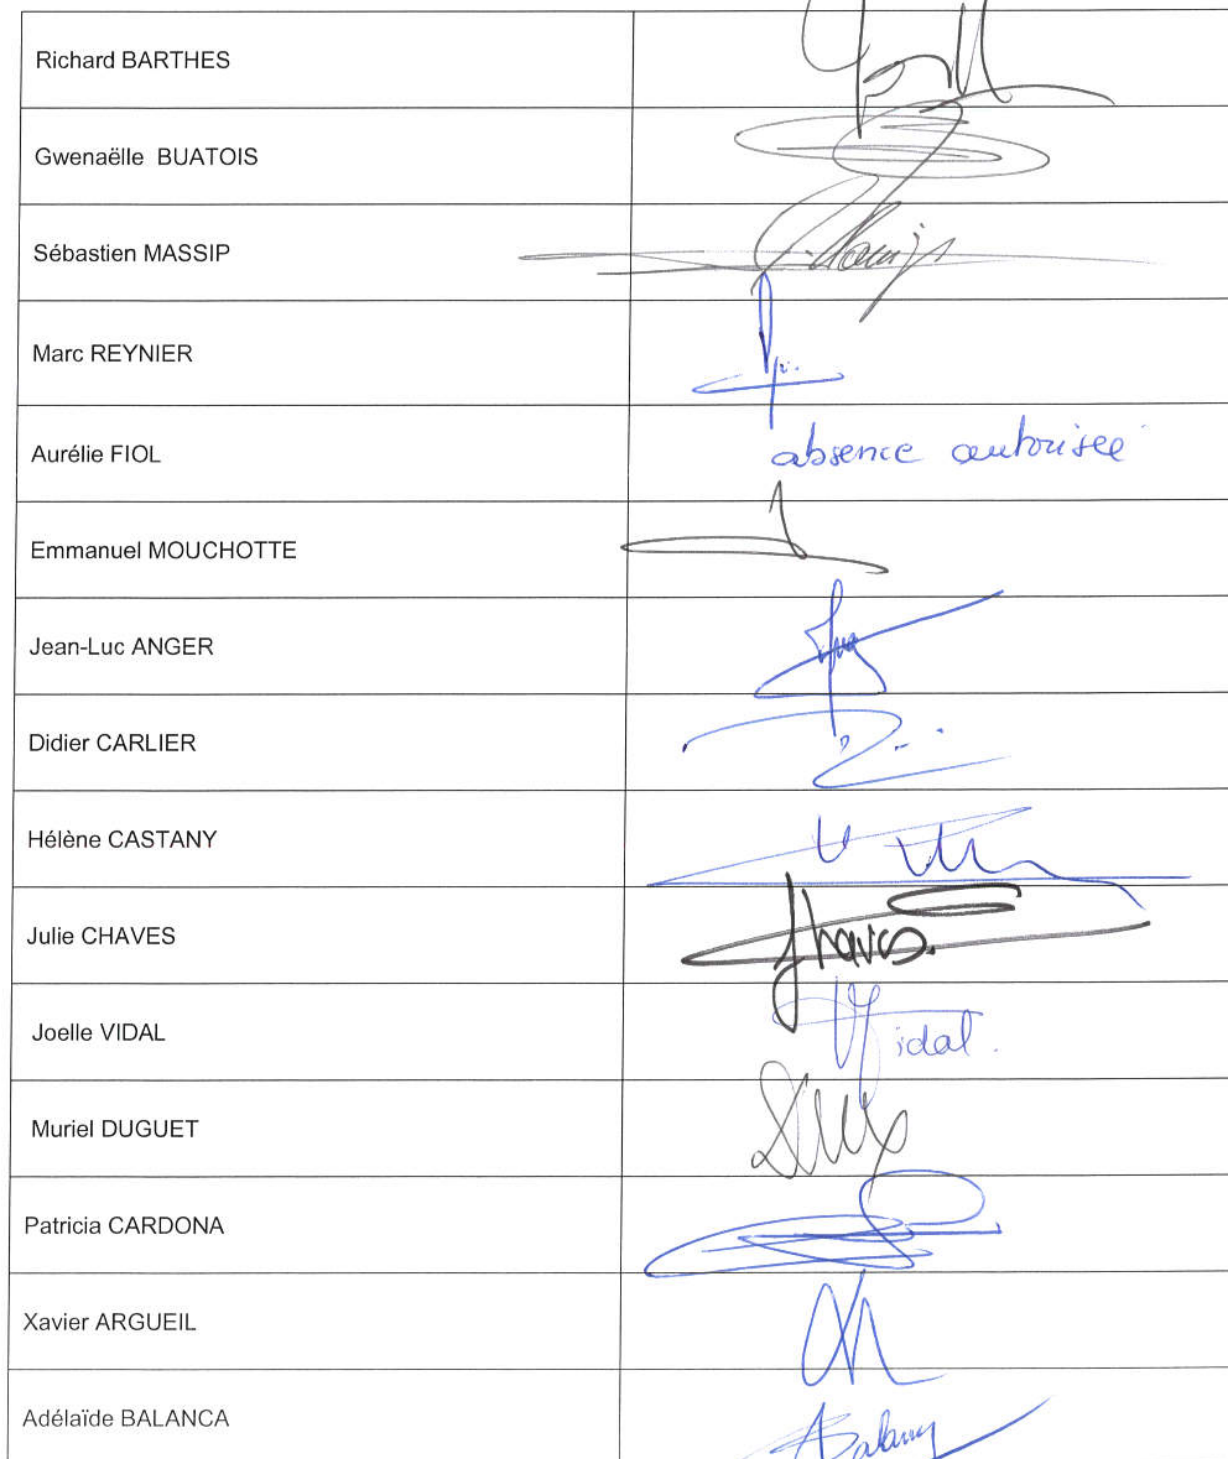 Richard BARTHES
Gwenaëlle BUATOIS
Sébastien MASSIP
Marc REYNIER
Aurélie FIOL absence autorisée
Emmanuel MOUCHOTTE
Jean-Luc ANGER
Didier CARLIER
Hélène CASTANY
Julie CHAVES Jhaves.
Joelle VIDAL Vidal.
Muriel DUGUET
Patricia CARDONA
Xavier ARGUEIL
Adélaïde BALANCA